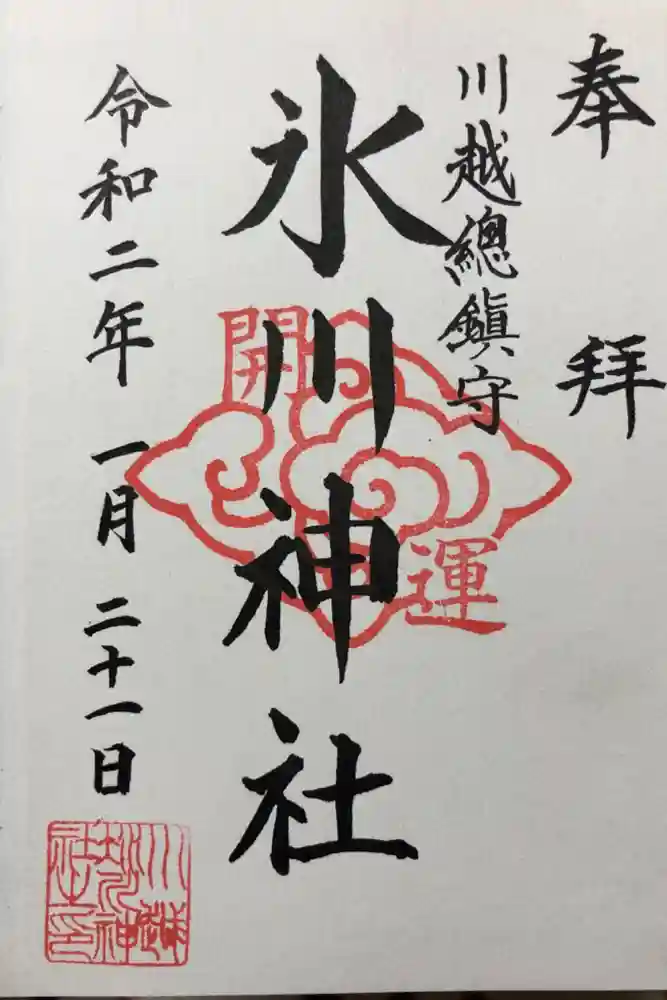 奉拝
川越總鎮守
氷川神社
開運
令和二年一月二十一日
川越
氷川神
社之印